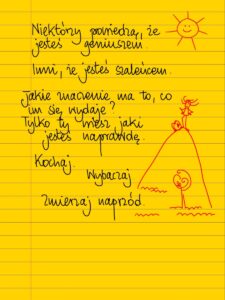 Niektórzy powiedzą, że
jesteś geniuszem.
Inni, że jesteś szaleńcem.
Jakie znaczenie ma to, co
im się wydaje?
Tylko ty wiesz, jaki
jesteś naprawdę.
Kochaj.
Wybaczaj
Zmierzaj naprzód.